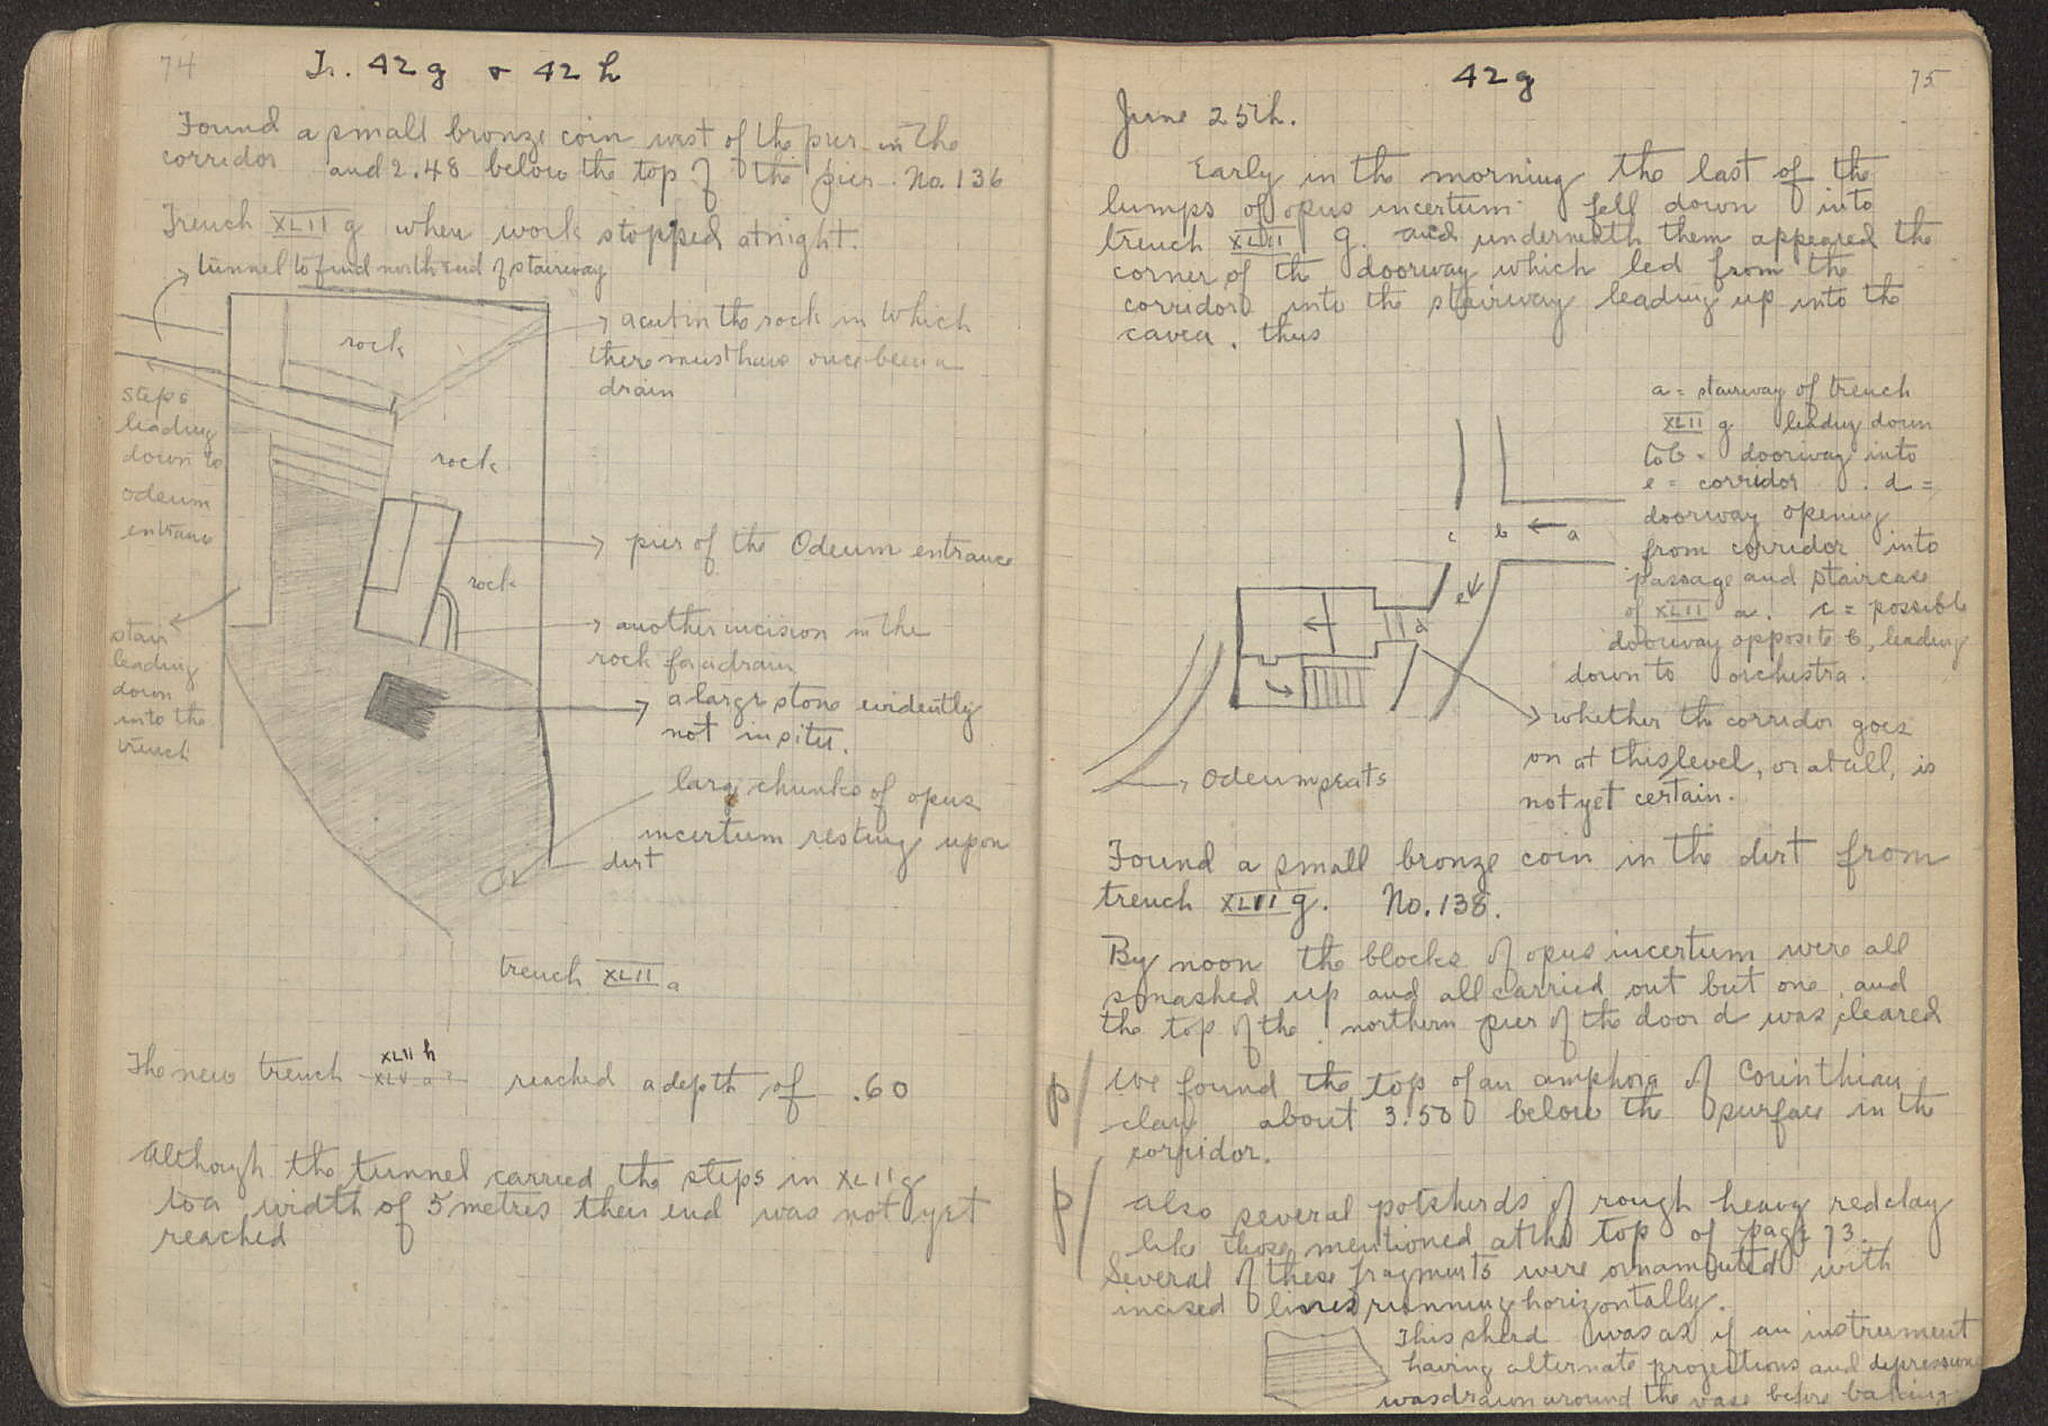 74
Tr. 42 g & 42 h
Found a small bronze coin west of the pier in the
corridor and 2.48 below the top of the pier. No. 136
Trench XLII g when work stopped at night.
tunnel to find north end of stairway
rock
a cut in the rock in which
there must have once been a
drain
steps
leading
down to
odeum
entrance
rock
pier of the Odeum entrance
rock
another incision in the
rock for a drain
stair
leading
down
into the
trench
a large stone evidently
not in situ.
large chunks of opus
incertum resting upon
dirt
trench XLII a
XLII h
The new trench XLV a? reached a depth of .60
Although the tunnel carried the steps in XLII g
to a width of 5 metres their end was not yet
reached
42 g
75
June 25th.
Early in the morning the last of the
lumps of opus incertum fell down into
trench XLII g. and underneath them appeared the
corner of the doorway which led from the
corridor into the stairway leading up into the
cavea. thus
a = stairway of trench
XLII g leading down
to b = doorway into
e = corridor. d =
doorway opening
from corridor into
passage and staircase
of XLII a. c = possible
doorway opposite b, leading
down to orchestra.
c b a
e
d
whether the corridor goes
on at this level, or at all, is
not yet certain.
Odeum seats
Found a small bronze coin in the dirt from
trench XLII g. No. 138.
By noon the blocks of opus incertum were all
smashed up and all carried out but one, and
the top of the northern pier of the door d was cleared
p/ We found the top of an amphora of Corinthian
clay about 3.50 below the surface in the
corridor.
p/ Also several potsherds of rough heavy red clay
like those mentioned at the top of page 73.
Several of these fragments were ornamented with
incised lines running horizontally.
This sherd was as if an instrument
having alternate projections and depressions
was drawn around the vase before baking